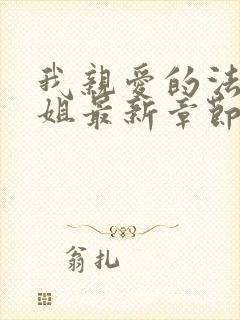 我親愛的法
姐最新章節
翁扎